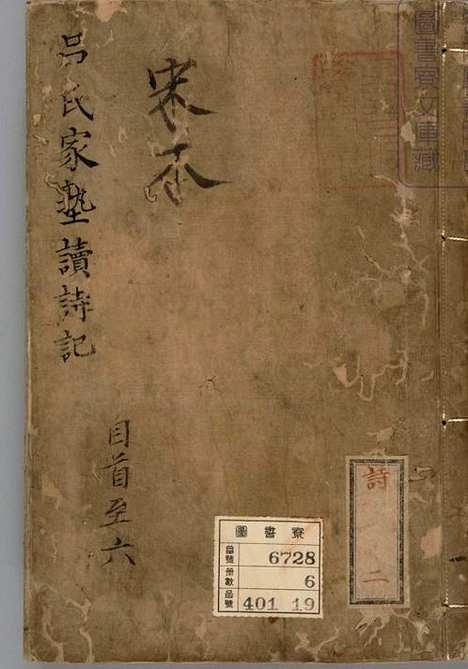 圖書寮文庫藏
宋本
呂氏家塾讀詩記
自首至六
詩
二
圖書寮
番號 6728
冊數 6
函號 401 19